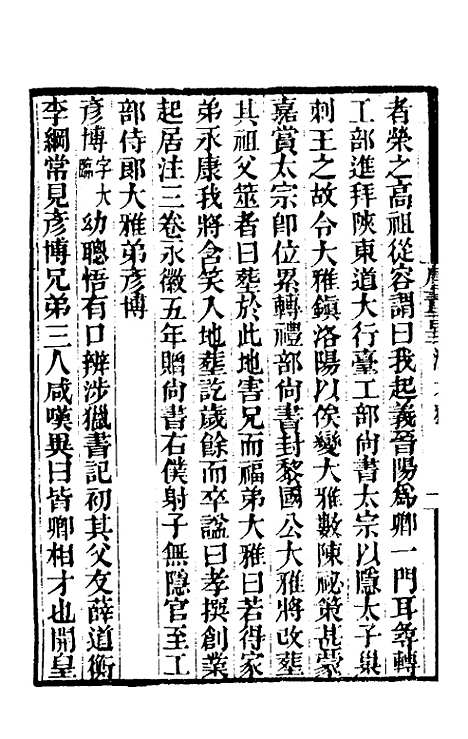 者榮之高祖從容謂曰我起義晉陽爲卿一門耳尋轉
工部進拜陝東道大行臺工部尙書太宗以隱太子巢
刺王之故令大雅鎭洛陽以俟變大雅數陳祕策甚蒙
嘉賞太宗卽位累轉禮部尙書封黎國公大雅將改葬
其祖父筮者曰葬於此地害兄而福弟大雅曰若得家
弟永康我將含笑入地葬訖歲餘而卒諡曰孝撰創業
起居注三卷永徽五年贈尙書右僕射子無隱官至工
部侍郎大雅弟彥博
彥博字大臨幼聰悟有口辨涉獵書記初其父友薛道衡
李綱常見彥博兄弟三人咸嘆異曰皆卿相才也開皇